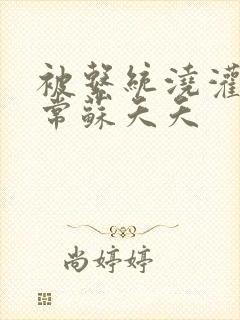 被繫統澆灌
常蘇天天
尚婷婷